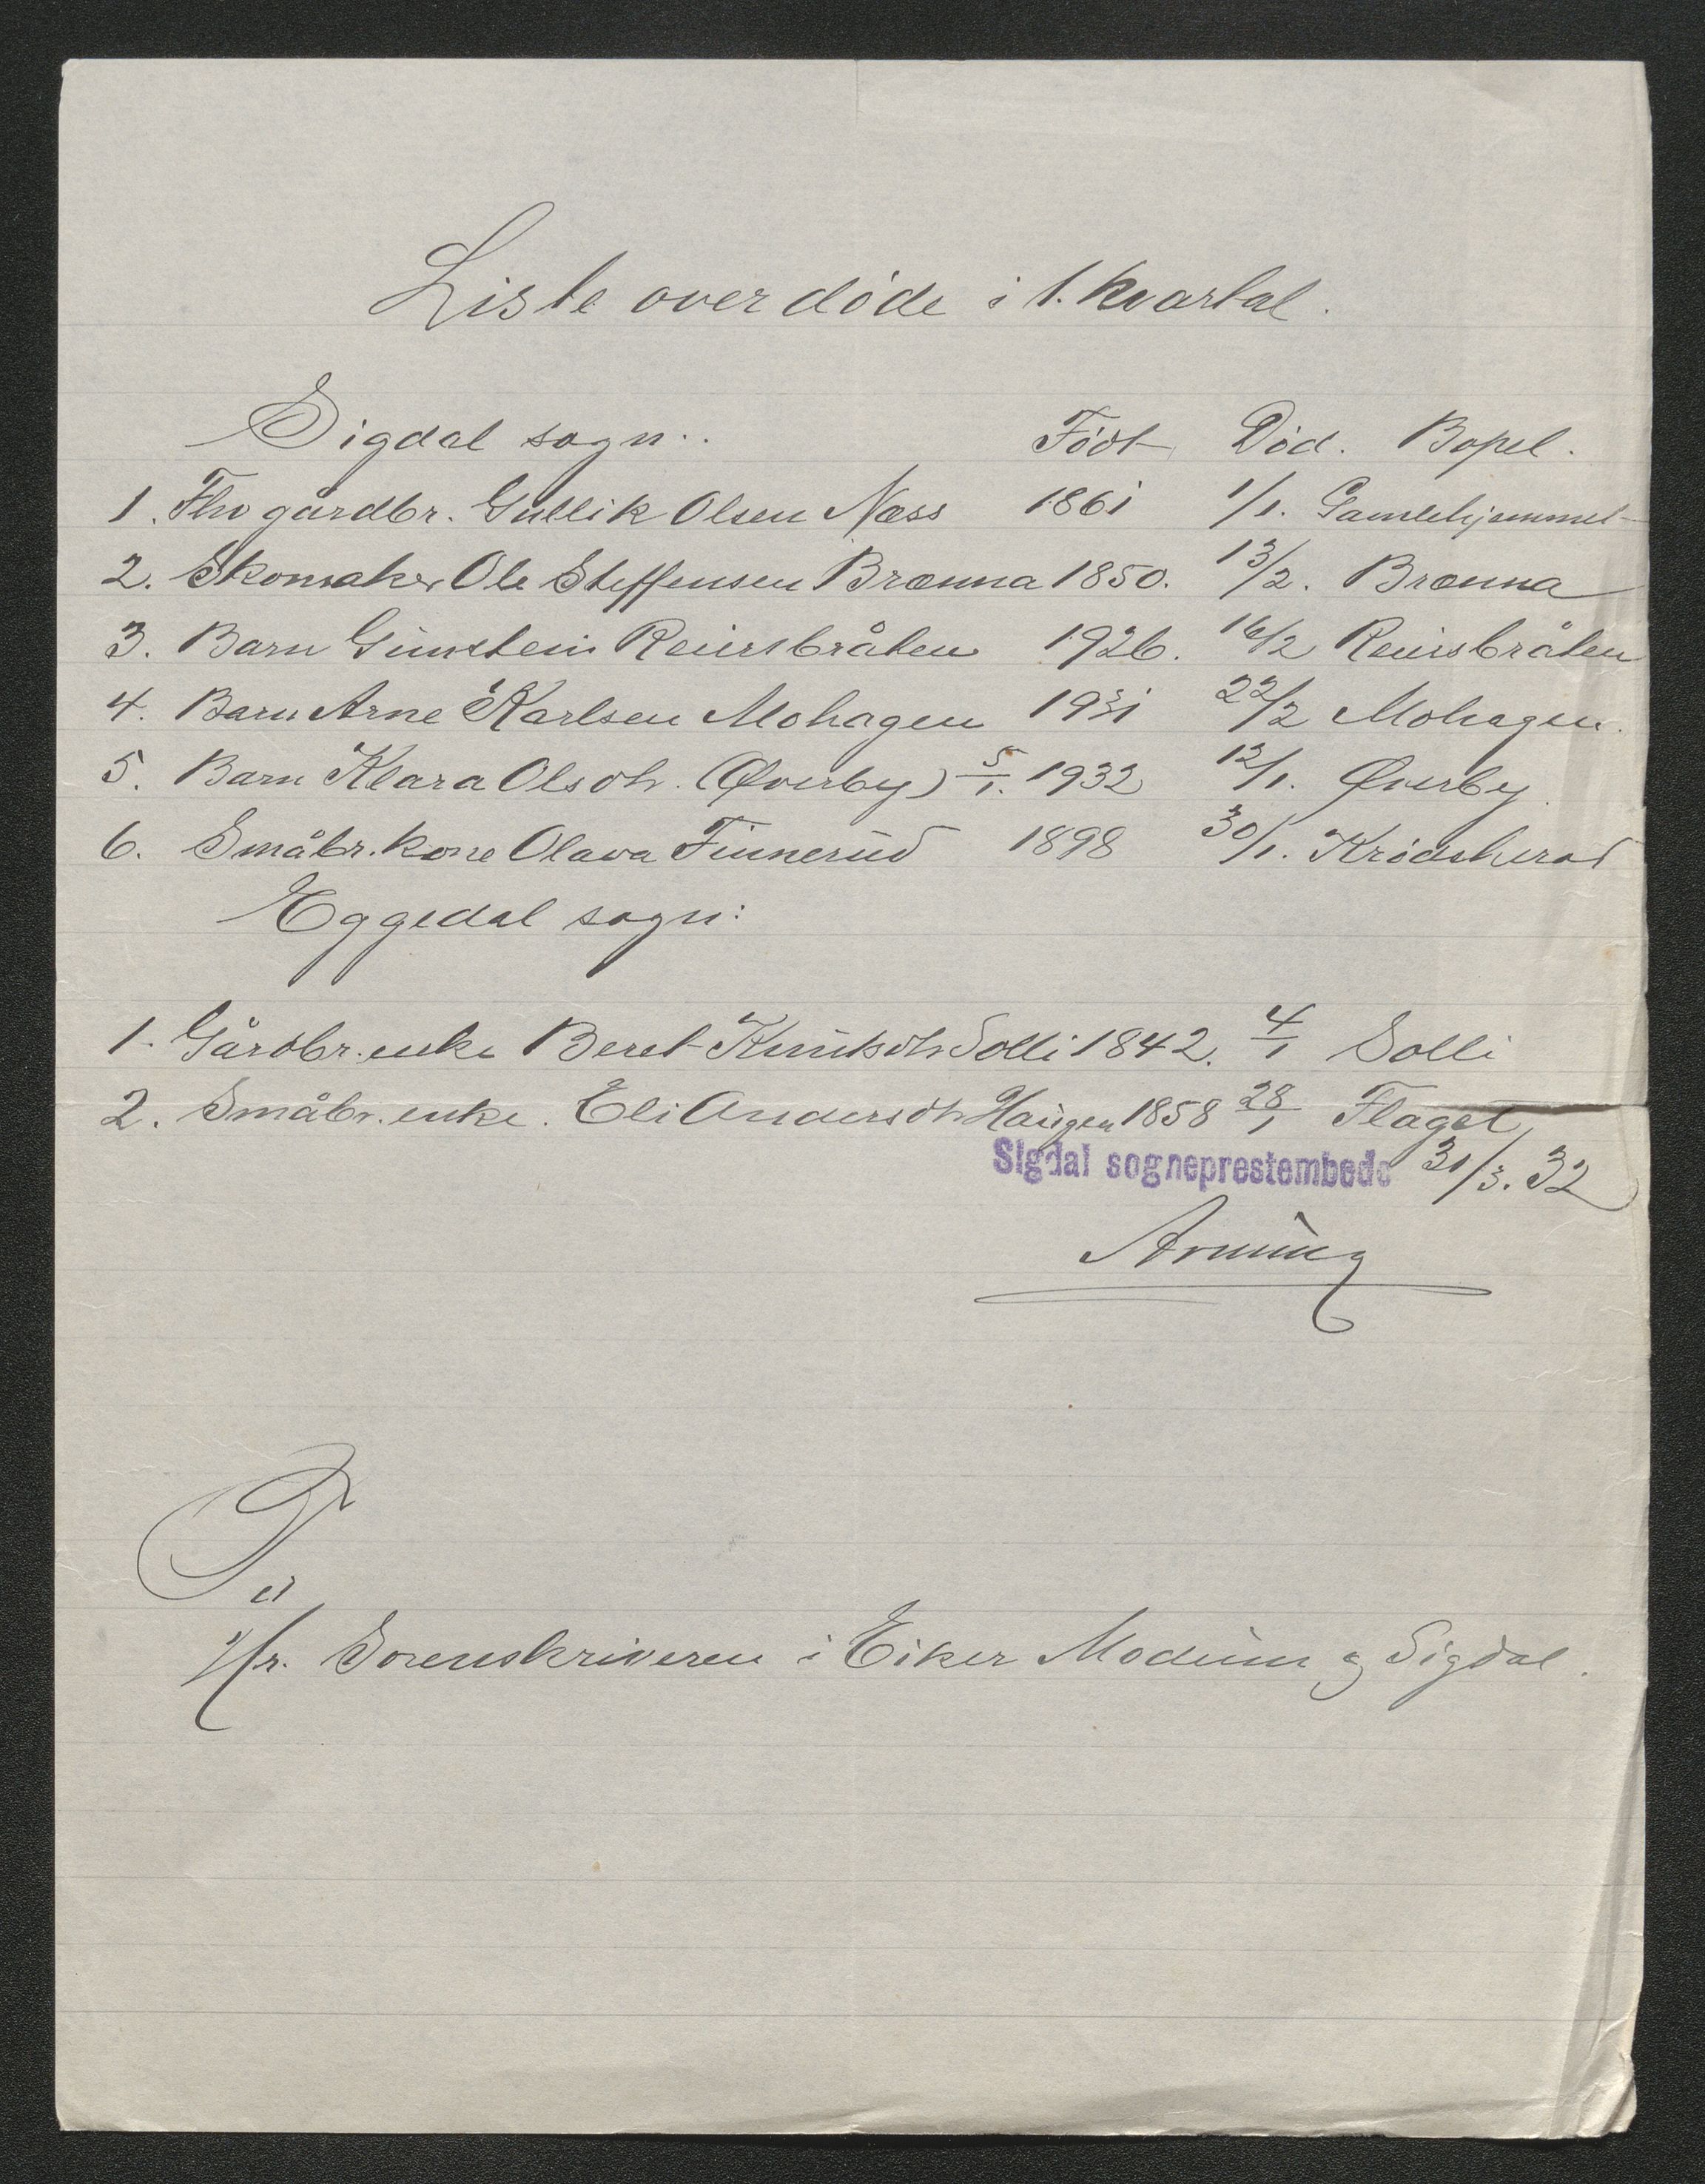 Liste over døde i 1. kvartal.
Sigdal sogn.. Født Død. Bopel.
1. Fhv gårdbr. Gullik Olsen Næss 1861 1/1. Gamlehjemmet
2. Skomaker Ole Steffensen Brænna 1850. 13/2. Brænna
3. Barn Gunstein Reiersbråten 1926. 16/2 Reiersbråten
4. Barn Arne Karlsen Mohagen 1931 22/2 Mohagen.
5. Barn Klara Olsdtr. (Øverby) 5/1. 1932 12/1. Øverby
6. Småbr. kone Olava Finnerud 1898 30/1. Krødsherad
Eggedal sogn:
1. Gårdbr. enke Beret Knutsdtr Solli 1842. 4/1 Solli
2. Småbr. enke. Eli Andersdtr Haugen 1858 28/1 Flaget
Sigdal sogneprestembede 31/3. 32
Til
Hr. Sorenskriveren i Eiker Modum og Sigdal.